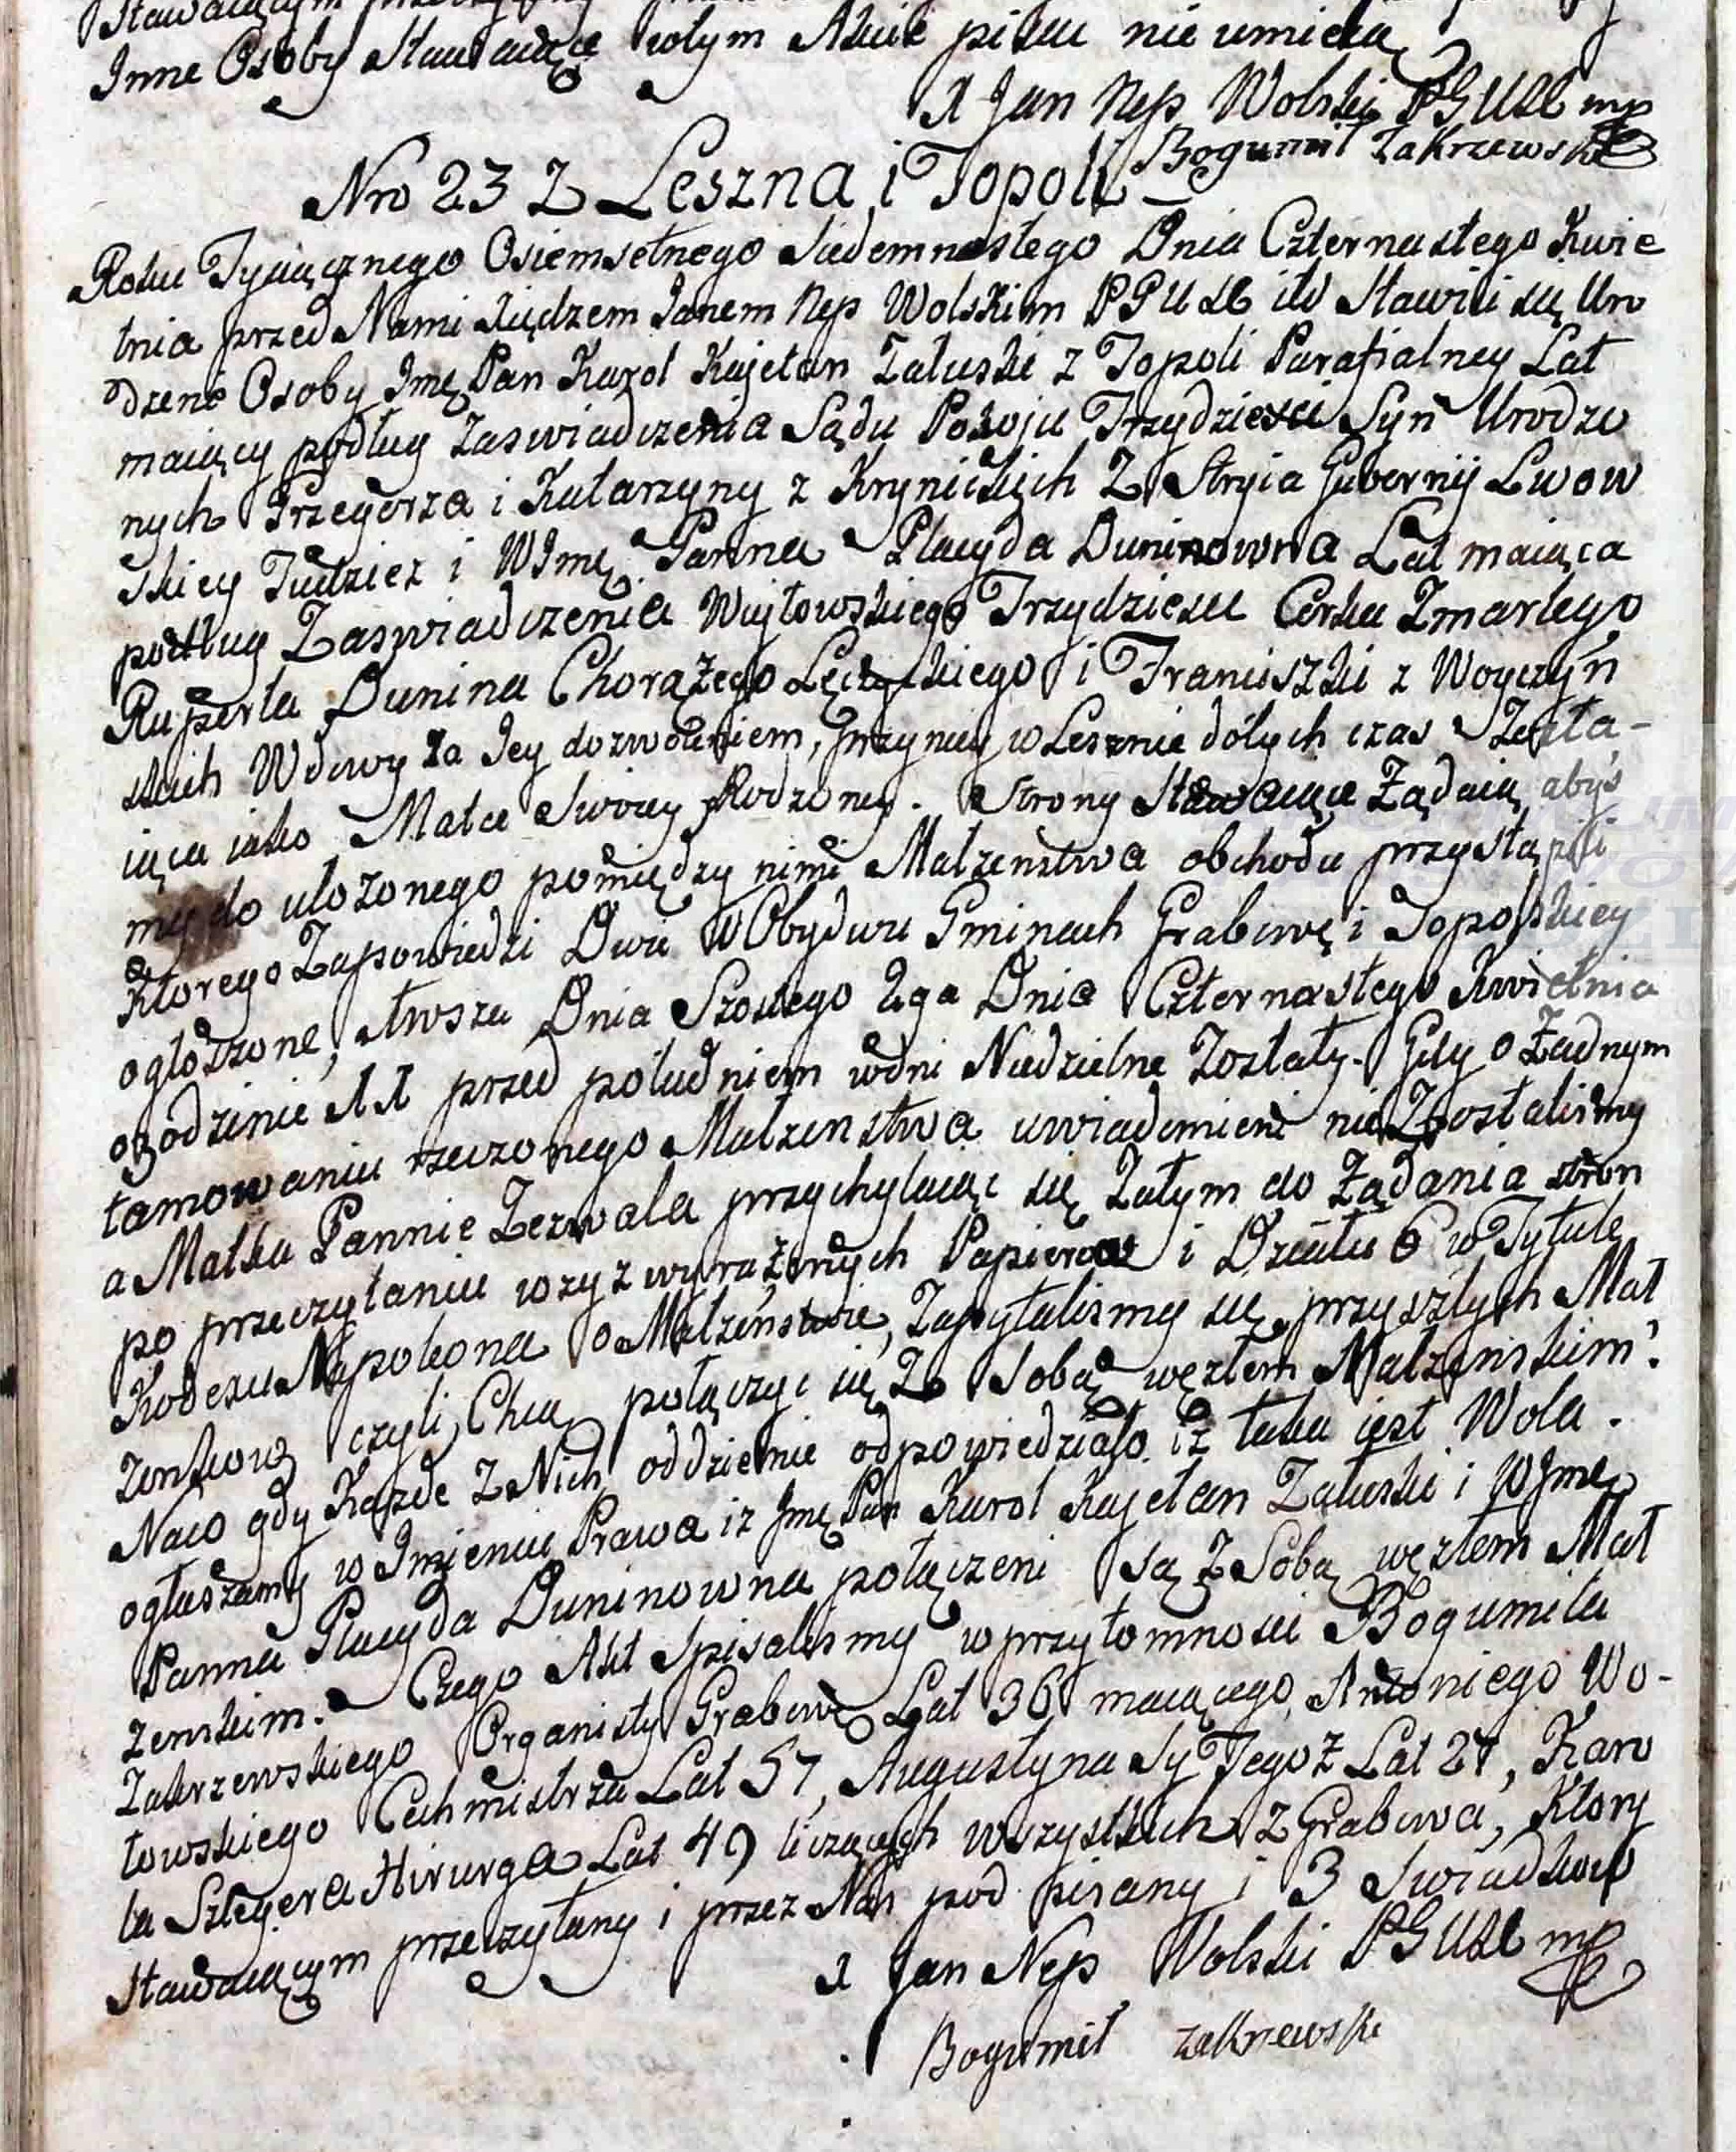 Stawaiącym
Inne Osoby Stawaiące wtym Akcie pisać nie umieią
X Jan Nep Wolski PGUSC mp
Bogumił Zakrzewski
Nro 23 Z Leszna i Topoli
Roku Tysiącznego Osiemsetnego Siedemnastego Dnia Czternastego Kwie
tnia przed Nami Xiędzem Janem Nep Wolskim PGUSC itd Stawili się Uro
dzeni Osoby Jmę Pan Karol Kajetan Załuski z Topoli Parafialney Lat
maiący podług Zaswiadczenia Sądu Pokoju Trzydziesci Syn Urodzo
nych Grzegorza i Katarzyny z Krynickich Z Stryia Gubernij Lwow
skiey Tudziez i WJmę Panna Placyda Duninowna Lat maiąca
podług Zaswiadczenia Wuytowskiego Trzydziesci Corka Zmarłego
Ruperta Dunina Chorążego Łęczyckiego i Franciszki z Woyczyn
skich Wdowy za Jey dozwoleniem, przyniey w Lesznie dotych czas Zosta-
iąca iako Matce Swoiey Rodzoney. Strony Stawaiące Żądaią, abys
my do ułożonego pomiędzy nimi Malzenstwa obchodu przystąpili
Ktorego Zapowiedzi Dwie w Obydwu Gminach Grabowę i Topolskiey
ogłoszone, Awsza Dnia Szostego 2ga Dnia Czternastego Kwietnia
ogodzinie 11 przed południem wdni Niedzielne Zostały. Gdy o Żadnym
tamowaniu rzeczonego Małzenstwa uwiadomieni nie Zostalismy
a Matka Pannie Zezwala przychylaiąc się Zatym do Żądania stron
po przeczytaniu wzyz wyrażonych Papierow i Działu 6 w Tytule
Kodexu Napoleona o Małzenstwie, Zapytalismy się przyszłych Mał
zonkow czyli Chcą połączyc się Ze Sobą węzłem Małzenskim?
Naco gdy Kazde Z Nich oddzielnie odpowiedziało iz taka iest Wola.
ogłaszamy w Jmieniu Prawa iz Jmę Pan Karol Kajetan Załuski i WJmę
Panna Placyda Duninowna połączeni są Z Sobą węzłem Mał
zenskim. Czego Akt Spisalismy w przytomnosci Bogumiła
Zakrzewskiego Organisty Grabowę Lat 36 maiącego, Antoniego Wo-
towskiego Cechmistrza Lat 57, Augustyna Sy Tegoz Lat 27, Karo
la Szteyera Hirurga Lat 49 liczących wszystkich Z Grabowa, Ktory
Stawaiącym przeczytany i przez Nas pod pisany i 3 Swiadkow
X Jan Nep Wolski PGUSC mp
Bogumił Zakrzewski